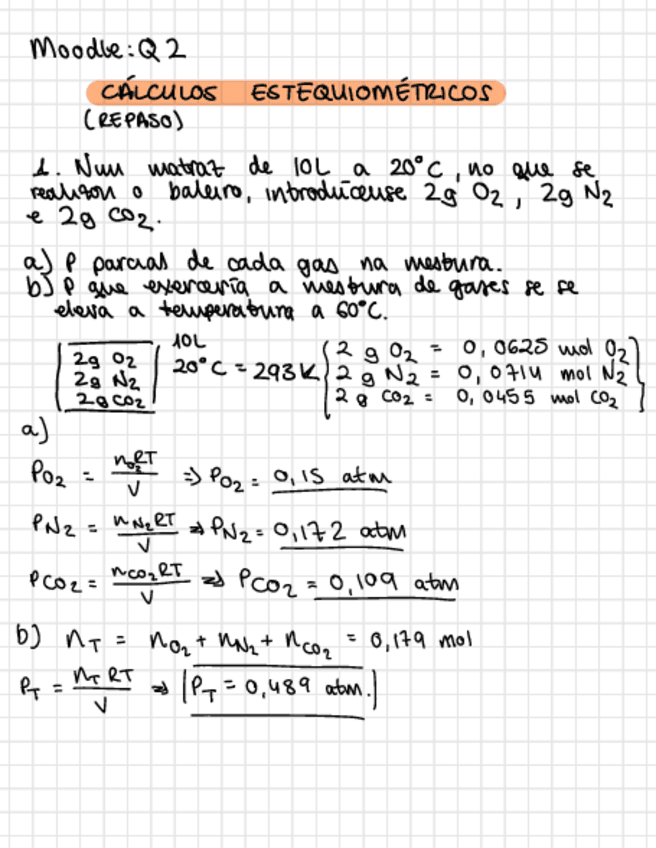 Moodle: Q2
CÁLCULOS ESTEQUIOMÉTRICOS
(REPASO)
1. Nun matraz de 10L a 20°C, no que se
realizou o baleiro, introdúcense 2g O₂, 2g N₂
e 2g CO₂.
a) P parcial de cada gas na mestura.
b) P que exercería a mestura de gases se se
eleva a temperatura a 60°C.
2g O₂
2g N₂
2g CO₂
10L
20°C = 293K
2 g O₂ = 0,0625 mol O₂
2 g N₂ = 0,0714 mol N₂
2 g CO₂ = 0,0455 mol CO₂
a)
PO₂ = nO₂RT / V => PO₂ = 0,15 atm
PN₂ = nN₂RT / V => PN₂ = 0,172 atm
PCO₂ = nCO₂RT / V => PCO₂ = 0,109 atm
b) nT = nO₂ + nN₂ + nCO₂ = 0,179 mol
PT = nT RT / V => PT = 0,489 atm.